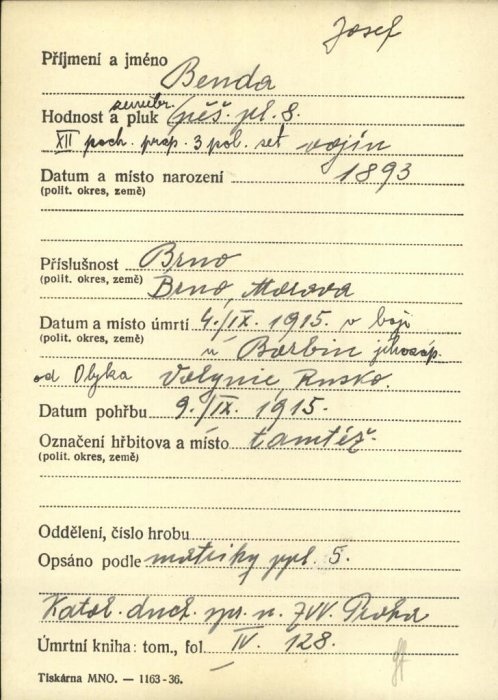 Josef
Příjmení a jméno Benda
zeměbr.
Hodnost a pluk pěš. pl. 8.
XII poch. prap. 3 pol. set. vojín
Datum a místo narození 1893
(polit. okres, země)
Příslušnost Brno
(polit. okres, země) Brno, Morava
Datum a místo úmrtí 4./IX. 1915. v boji
(polit. okres, země) u Barbin jihozáp.
od Olyka Volynie, Rusko.
Datum pohřbu 9./IX. 1915.
Označení hřbitova a místo tamtéž.
(polit. okres, země)
Oddělení, číslo hrobu
Opsáno podle matriky ppl. 5.
Katol. duch. spr. n. ZVV. Praha
Úmrtní kniha: tom., fol. IV. 128.
Tiskárna MNO. — 1163-36.